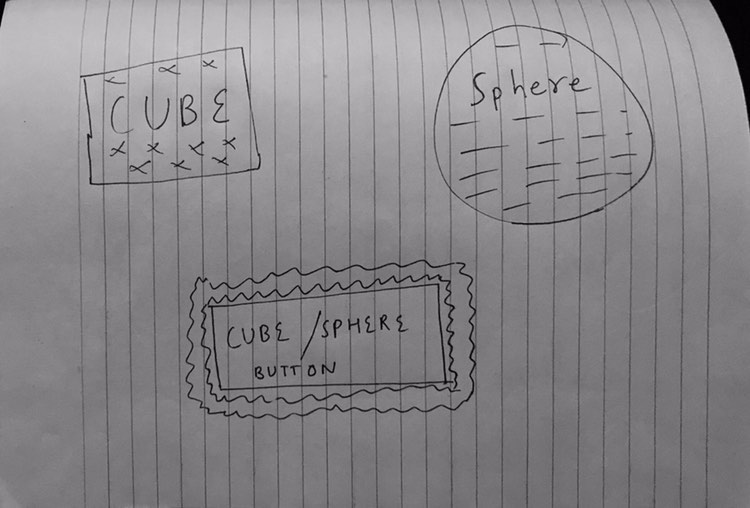 CUBE
Sphere
CUBE / SPHERE
BUTTON